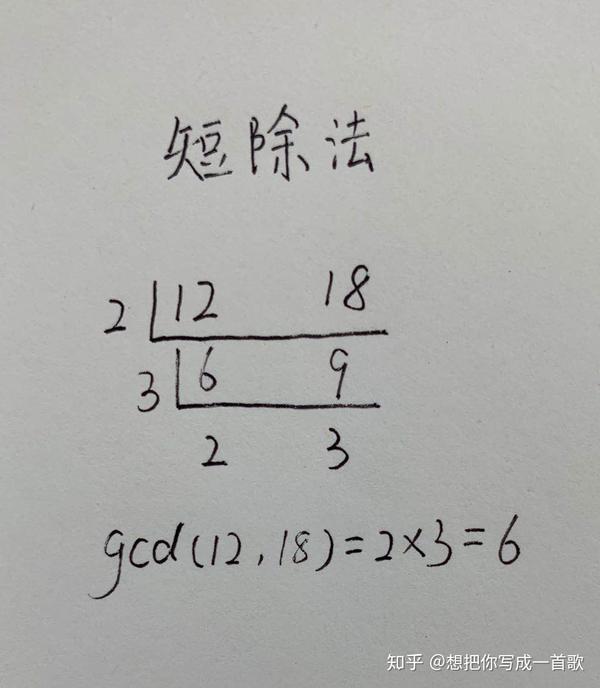 短除法
2 12 18
3 6 9
2 3
gcd(12,18)=2×3=6
知乎 @想把你写成一首歌